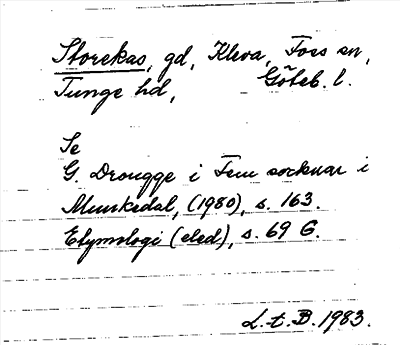 Storekas, gd, Kleva, Foss sn,
Tunge hd, Göteb. l.
Se
G. Drougge i Fem socknar i
Munkedal, (1980), s. 163.
Etymologi (eled), s. 69 G.
L. t. B. 1983.